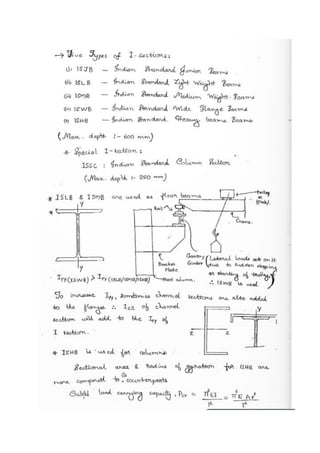 → Five Types of I-sections:
(i) ISJB — Indian Standard Junior Beams
(ii) ISLB — Indian Standard Light Weight Beams
(iii) ISMB — Indian Standard Medium Weight Beams
(iv) ISWB — Indian Standard Wide Flange Beams
(v) ISHB — Indian Standard Heavy beams Beams
(Max. depth :- 600 mm)
* Special I-section :
ISSC : Indian Standard Column Section
(Max. depth :- 250 mm)
* ISLB & ISMB are used as floor beams
Y
Rail
Crane
Bracket Plate
Gantry Girder
(Lateral loads act on it due to sudden stopping or starting of trolley)
∴ ISWB is used
Y
Steel column
Iyy(ISWB) > Iyy(ISLB/ISMB/ISHB)
To increase Iyy, sometimes channel sections are also added
to the flanges ∴ Izz of channel
section will add to the Iyy of
I section.
Z Z
* ISHB is used for columns
Sectional area & radius of gyration for ISHB are
more compared to its counterparts
load carrying capacity, Pcr = π²EI / l² = π²EAr² / l²